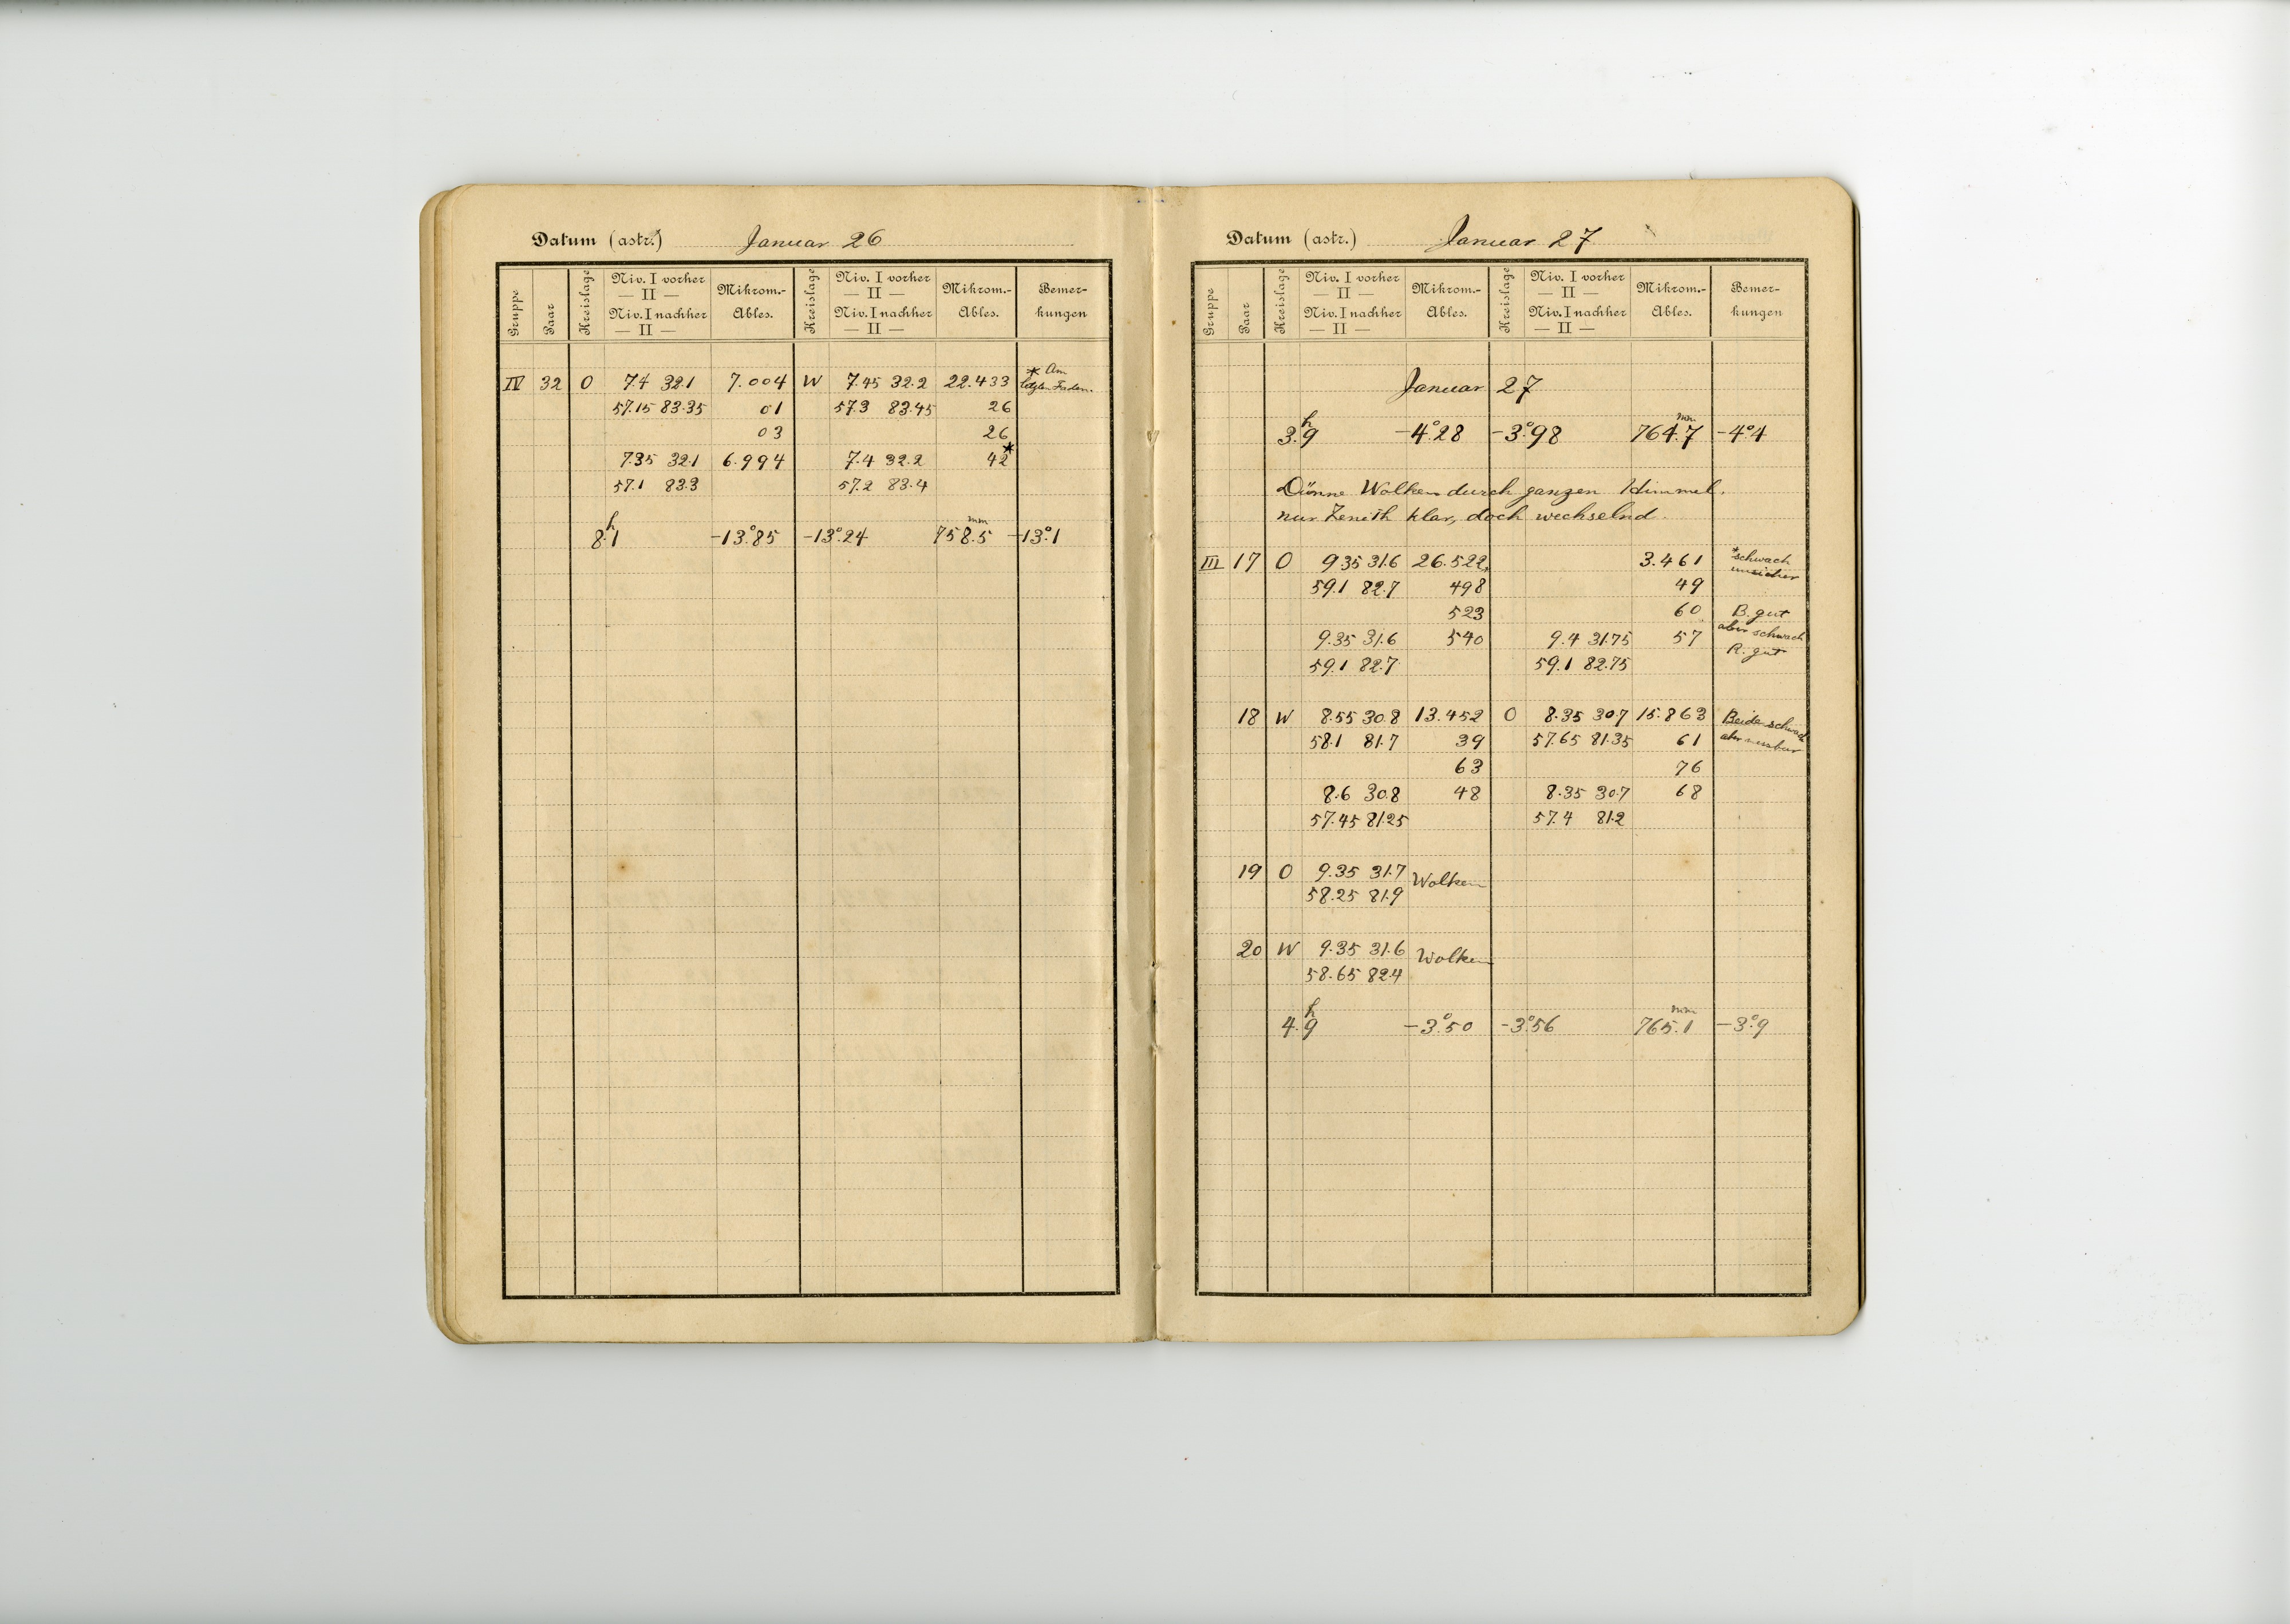 Datum (astr.) Januar 26
Gruppe Paar Kreislage Niv. I vorher — II — Niv. I nachher — II — Mikrom.-Ables. Kreislage Niv. I vorher — II — Niv. I nachher — II — Mikrom.-Ables. Bemer-kungen
IV 32 O 7.4 32.1 7.004 W 7.45 32.2 22.433 * Am
letzten Faden.
57.15 83.35 01 57.3 83.45 26
03 26
7.35 32.1 6.994 7.4 32.2 42*
57.1 83.3 57.2 83.4
8.h1 -13°.85 -13°.24 758.5 mm -13°.1
Datum (astr.) Januar 27
Gruppe Paar Kreislage Niv. I vorher — II — Niv. I nachher — II — Mikrom.-Ables. Kreislage Niv. I vorher — II — Niv. I nachher — II — Mikrom.-Ables. Bemer-kungen
Januar 27
3.h9 -4°.28 -3°.98 764.7 mm -4°.4
Dünne Wolken durch ganzen Himmel,
nur Zenith klar, doch wechselnd.
III 17 O 9.35 31.6 26.522 3.461 *schwach
unsicher
59.1 82.7 498 49
523 60 B. gut
aber schwach
9.35 31.6 540 9.4 31.75 57
R. gut
59.1 82.7 59.1 82.75
18 W 8.55 30.8 13.452 O 8.35 30.7 15.863 Beide schwach
58.1 81.7 39 57.65 81.35 61 aber messbar
63 76
8.6 30.8 48 8.35 30.7 68
57.45 81.25 57.4 81.2
19 O 9.35 31.7 Wolken
58.25 81.9
20 W 9.35 31.6 Wolken
58.65 82.4
4.h9 -3°.50 -3°.56 765.1 mm -3°.9